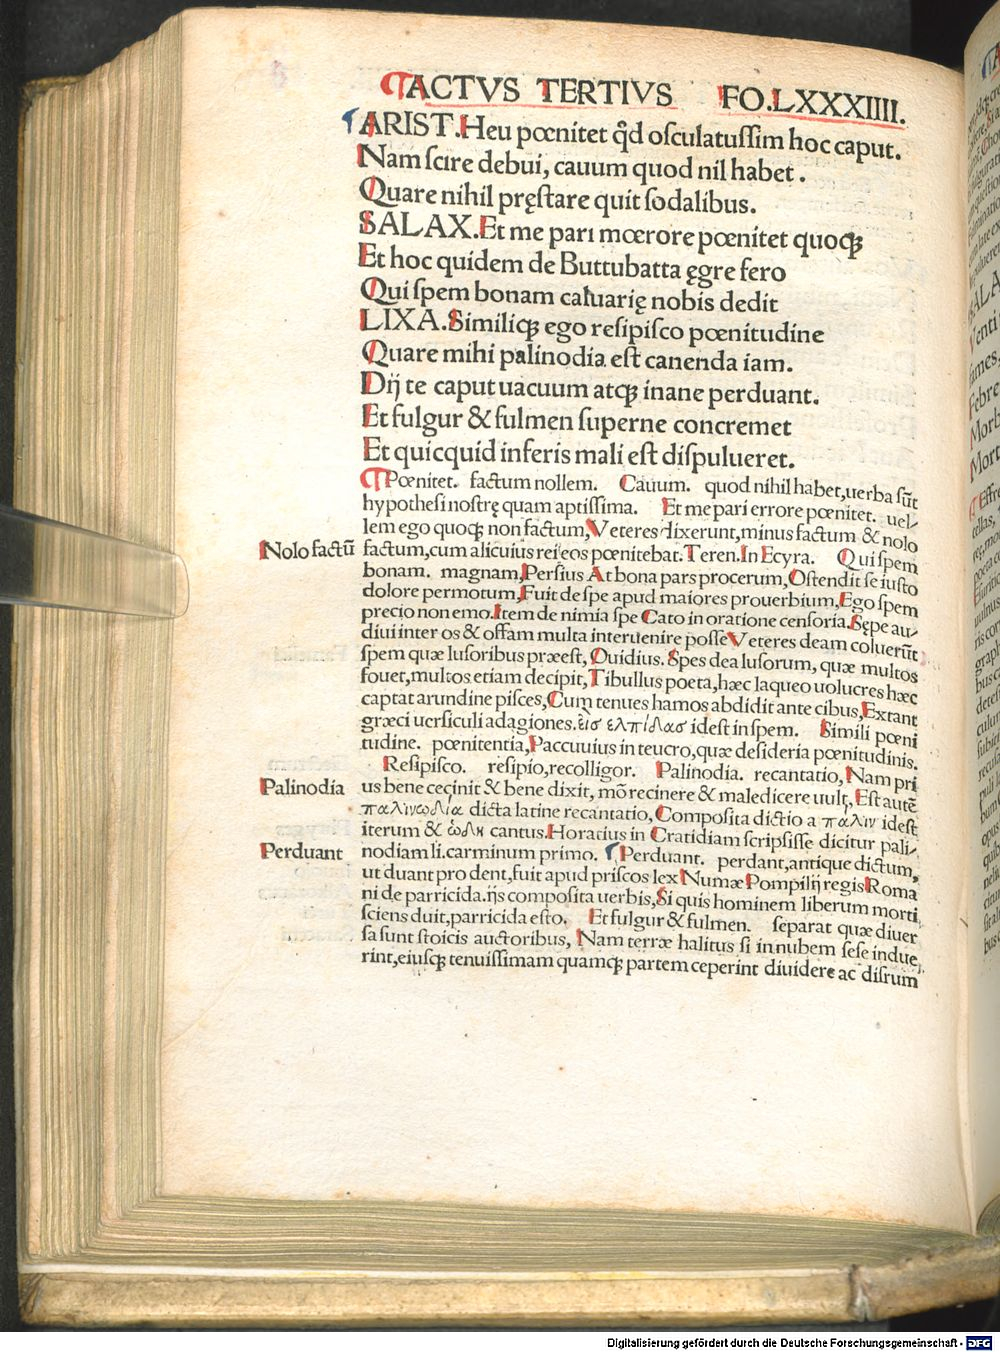 ACTVS TERTIVS FO.LXXXIIII.
ARIST.Heu pœnitet qđ oſculatusſim hoc caput.
Nam ſcire debui, cauum quod nil habet.
Quare nihil pręſtare quit ſodalibus.
SALAX.Et me pari mœrore pœnitet quoqꝫ
Et hoc quidem de Buttubatta ęgre fero
Qui ſpem bonam caluarię nobis dedit
LIXA.Similiqꝫ ego reſipiſco pœnitudine
Quare mihi palinodia eſt canenda iam.
Dij te caput uacuum atqꝫ inane perduant.
Et fulgur & fulmen ſuperne concremet
Et quicquid inferis mali eſt diſpulueret.
¶Pœnitet. factum nollem. Cauum. quod nihil habet,uerba ſūt
hypotheſi noſtrę quam aptiſſima. Et me pari errore pœnitet. uel⸗
lem ego quoqꝫ non factum,Veteres dixerunt,minus factum & nolo
Nolo factū factum,cum alicuius rei eos pœnitebat.Teren.In Ecyra. Qui ſpem
bonam. magnam,Perſius At bona pars procerum,Oſtendit ſe iuſto
dolore permotum,Fuit de ſpe apud maiores prouerbium,Ego ſpem
precio non emo.Item de nimia ſpe Cato in oratione cenſoria.Sępe au⸗
diui inter os & offam multa interuenire poſſe Veteres deam coluerūt
ſpem quæ luſoribus præeſt, Ouidius. Spes dea luſorum, quæ multos
fouet,multos etiam decipit,Tibullus poeta,hæc laqueo uolucres hæc
captat arundine piſces,Cum tenues hamos abdidit ante cibus,Extant
græci uerſiculi adagiones.εἰσ ελπίδασ id eſt in ſpem. Simili pœni
tudine. pœnitentia,Paccuuius in teucro,quæ deſideria pœnitudinis.
Reſipiſco. reſipio,recolligor. Palinodia. recantatio,Nam pri
Palinodia us bene cecinit & bene dixit, mō recinere & maledicere uult,Eſt autē
παλινωδία dicta latine recantatio,Compoſita dictio a παλιν id eſt
iterum & ὠδη cantus.Horatius in Cratidiam ſcripſiſſe dicitur pali⸗
Perduant nodiam li.carminum primo. ¶Perduant. perdant,antique dictum,
ut duant pro dent,fuit apud priſcos lex Numæ Pompilij regis Roma
ni de parricida.ijs compoſita uerbis,Si quis hominem liberum morti
ſciens duit,parricida eſto. Et fulgur & fulmen. separat quæ diuer
ſa ſunt ſtoicis auctoribus, Nam terræ halitus ſi in nubem ſeſe indue
rint,eiuſqꝫ tenuiſſimam quamqꝫ partem ceperint diuidere ac diſrum
Digitalisierung gefördert durch die Deutsche Forschungsgemeinschaft - DFG